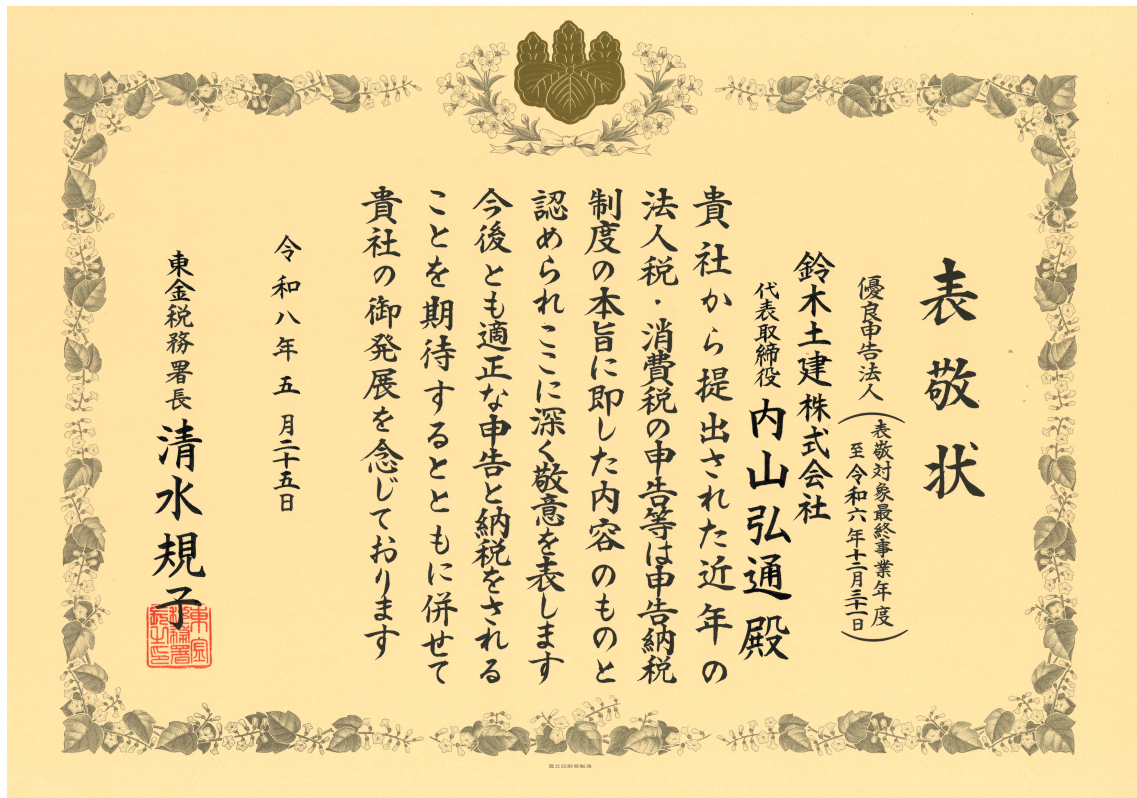 表敬状
優良申告法人
表敬対象最終事業年度
至令和六年十二月三十一日
鈴木土建株式会社
代表取締役 内山弘通殿
貴社から提出された近年の
法人税・消費税の申告等は申告納税
制度の本旨に即した内容のものと
認められここに深く敬意を表します
今後とも適正な申告と納税をされる
ことを期待するとともに併せて
貴社の御発展を念じております
令和八年五月二十五日
東金税務署長 清水規子
東金
税務署
長之印
国立印刷局製造